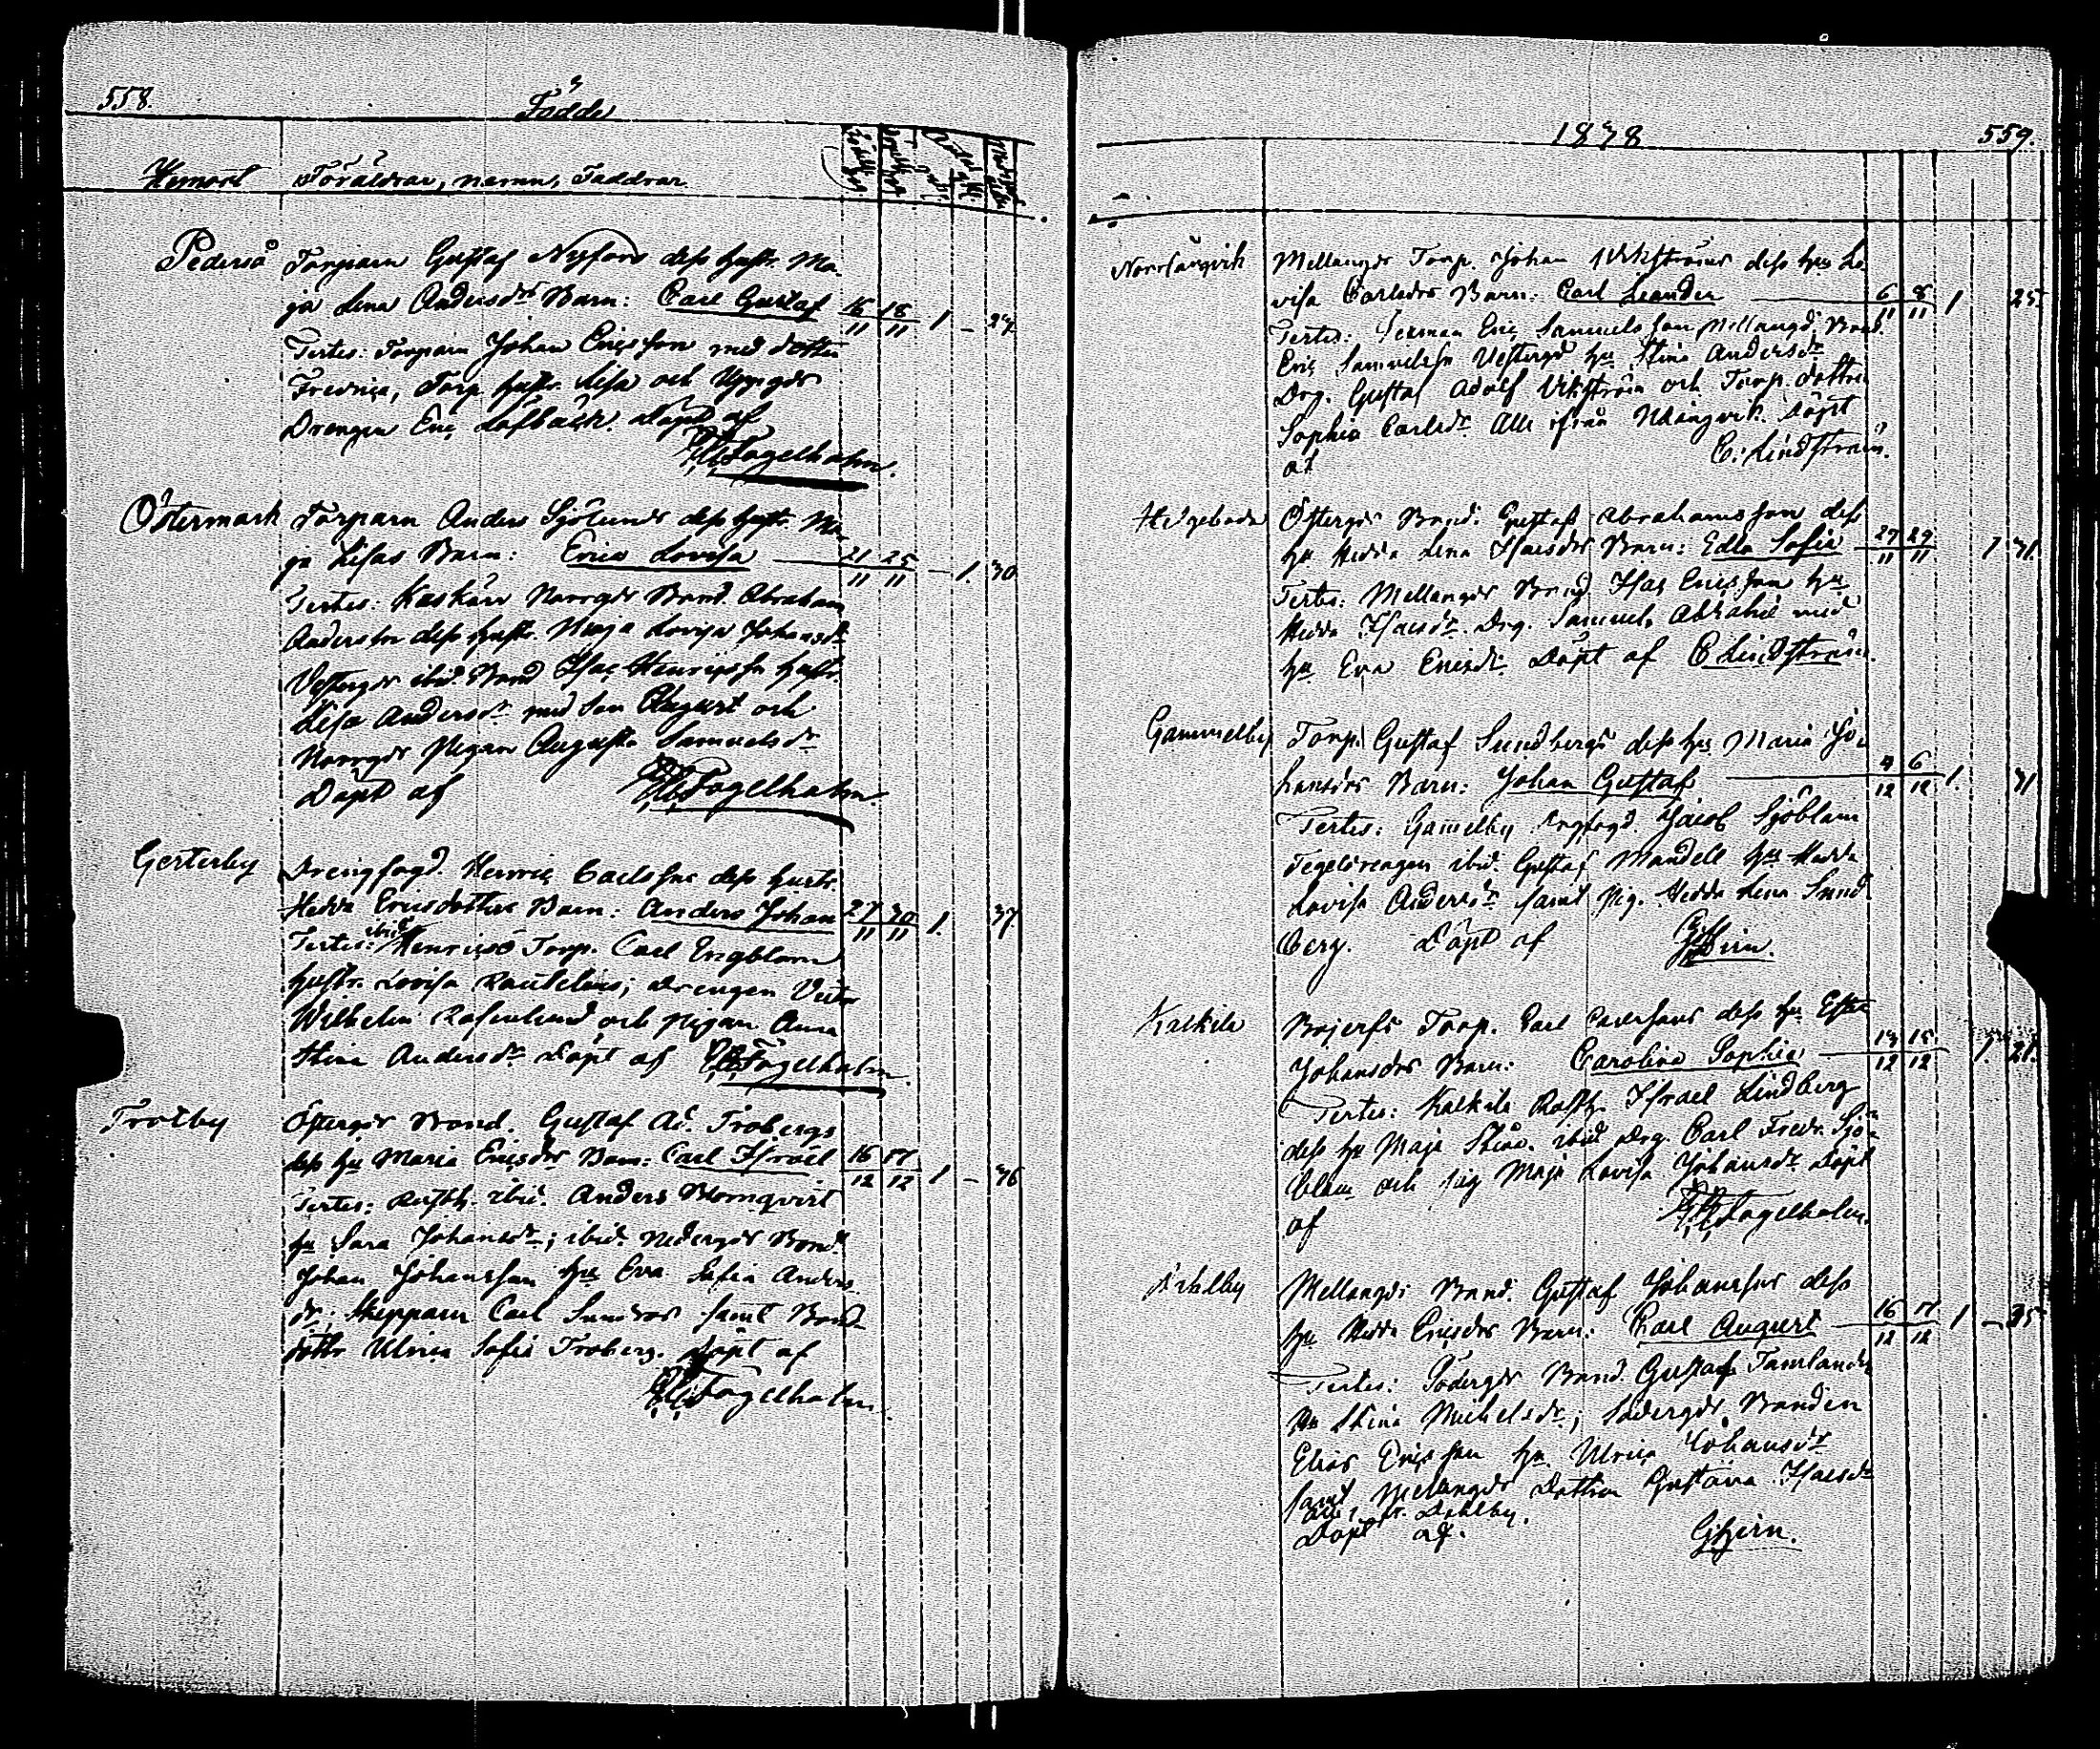 558.
Födde
Hemort Föräldrar, namn, Faddrar.
Pedersö Torparn Gustaf Nyfors dess hustr. Ma-
ja Lena Andersdrs Barn: Carl Gustaf 16/11 18/11 1 – 27.
Testes: Torparn Johan Ericsson med dotter
Fredrica, Torp. hustr. Lisa och
Drengen Eric Löfbäck. Döpt af
Fogelholm.
Östermark Torparn Anders Sjölunds dess hustr. Ma-
ja Lisas Barn: Erica Lovisa 21/11 25/11 – 1. 30
Testes: Kaskärr Norrgds Bond. Abraham
Andersson dess hustr. Maja Lovisa Johansdr
Vestergds ibid. Bond Isac Henricssn hustr.
Lisa Andersdr med son August och
Norrgds Pigan Augusta Samuelsdr
Döpt af Fogelholm.
Gesterby Drengfogd. Henric Carlssns dess hustr.
Hedda Ericsdotters Barn: Anders Johan 27/11 30/11 1. 37.
Testes: ibid Torp. Carl Engblom
hustr. Lovisa Rautelius; Drengen
Wilhelm Rosenlund och Pigan Anna
Stina Andersdr Döpt af Fogelholm.
Trotby Östergds Bond. Gustaf Ad. Trobergs
dess hu Maria Ericsdrs Barn: Carl Israel 16/12 17/12 1 – 36
Testes: Rusth. ibid. Anders Blomqvist
hu Sara Johansdr; ibid. Nedergds Bond.
Johan Johansson hu Eva Sofia Anders-
dr; Skepparn Carl Sundros samt Bond-
dottr Ulrica Sofia Troberg. Döpt af
Fogelholm.
1878 559.
Norrlångvik Mellangds Torp. Johan Vikströms dess hu Lo-
visa Carlsdrs Barn: Carl Leander 6/11 8/11 1 25.
Testes: Sexman Eric Samuelsson Mellangd. Bond.
Eric Samuelssn Vestergd hu Stina Andersdr
Drg. Gustaf Adolf Vikström och Torp. dottren
Sophia Carlsdr Alle ifrån Nlångvik. Döpt
af C. Lindström.
Östergds Bond. Gustaf Abrahamsson dess
hu Hedda Lena Isacsdrs Barn: Edla Sofia 27/11 29/11 1 31.
Testes: Mellangds Bond. Isac Ericsson hu
Hedda Isacsdr. Drg. Samuel med
hu Eva Ericsdr Döpt af C Lindström.
Gammelby Torp. Gustaf Sundbergs dess hu Maria Jo-
hansdrs Barn: Johan Gustaf 4/12 6/12 1. 31
Testes: Gamelby Drgfogd. Jacob Sjöblom
Tegeldrengen ibid. Gustaf Mandell hu Hedda
Lovisa Andersdr samt Pig. Hedda Lena Sund-
berg. Döpt af
Kalkila Torp. Carl Carlssons dess hu Ester
Johansdrs Barn: Carolina Sophia 13/12 15/12 1. 21.
Testes: Kalkila Rusth. Israel Lindberg
dess hu Maja Stina. ibid Drg. Carl Fredr. Sjö-
blom och pig Maja Lovisa Johansdr Döpt
af Fogelholm.
Mellangds Bond. Gustaf Johanssns dess
hu Hedda Ericsdrs Barn: Carl August 16/12 17/12 1 – 35
Testes: Södergds Bond. Gustaf
hu Stina Michelsdr; Södergds Bonden
Elias Ericsson hu Ulrica Johansdr
samt Mellangds Dottren Gustava Isacsdr
alle fr. Dahlby.
Döpt af.